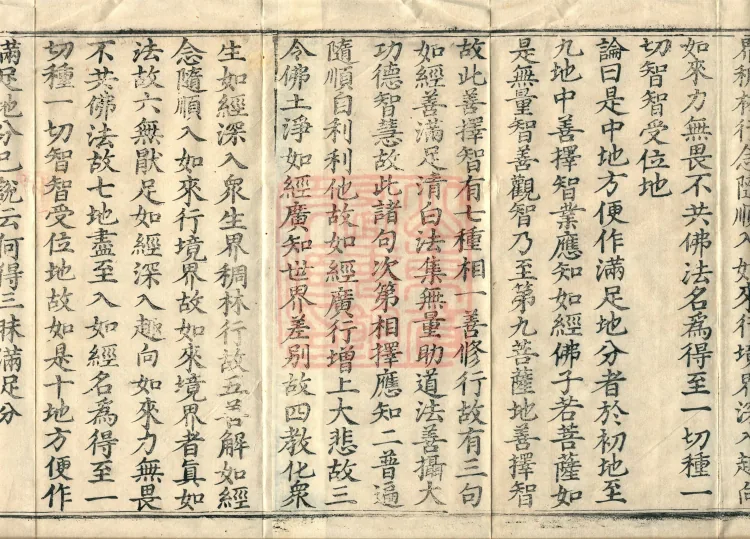 界稠林行念隨順入如來行境界深入趣向
如來力無畏不共佛法名爲得至一切種一
切智智受位地
論曰是中地方便作滿足地分者於初地至
九地中善擇智業應知如經佛子若菩薩如
是無量智善觀智乃至第九菩薩地善擇智
故此善擇智有七種相一善修行故有三句
如經善滿足清白法集無量助道法善攝大
功德智慧故此諸句次第相擇應知二普遍
隨順自利利他故如經廣行增上大悲故三
令佛土淨如經廣知世界差別故四教化衆
生如經深入衆生界稠林行故五善解如經
念隨順入如來行境界故如來境界者眞如
法故六無猒足如經深入趣向如來力無畏
不共佛法故七地盡至入如經名爲得至一
切種一切智智受位地故如是十地方便作
滿足地分已說云何得三昧滿足分